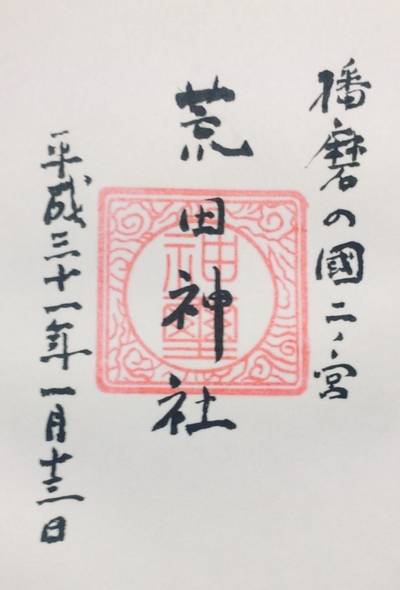 播磨の國二ノ宮
荒田神社
神璽
平成三十一年一月十三日